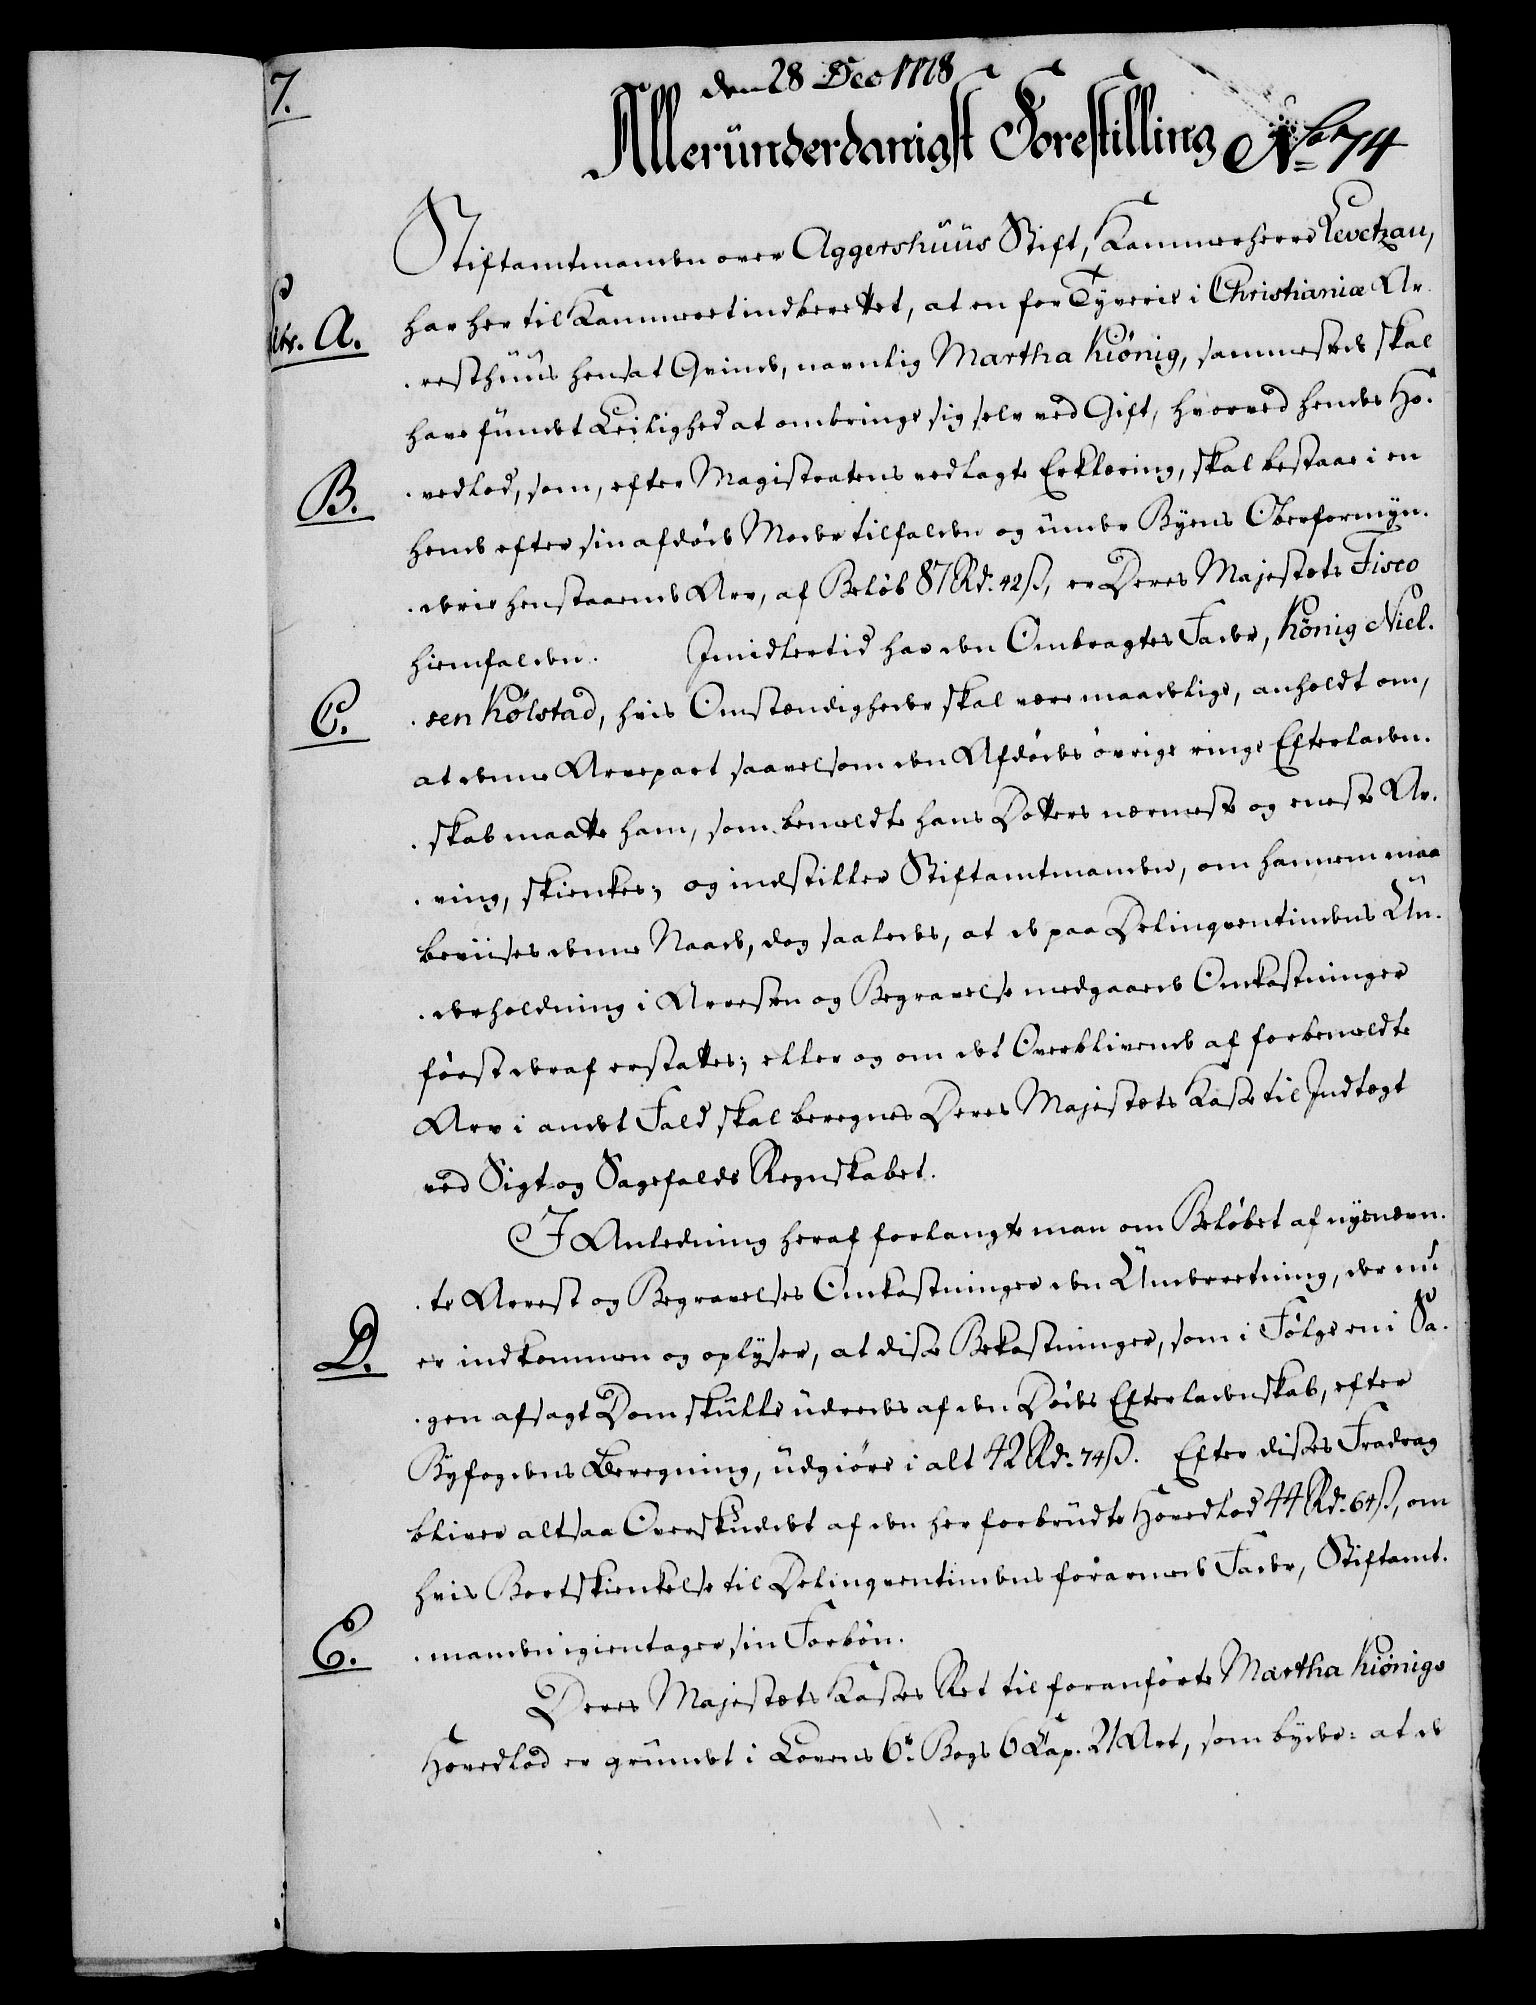 7.
den 28 Dec 1778
Alleründerdanigst Forestilling No 74
Stiftamtmanden over Aggershuus Stift, Kammerherre Levetzau,
Ltr. A.
har her til Kammeret indberettet, at en for Tyverie i Christianiæ Ar-
resthuus hensat Qvinde, navnlig Martha Kiönig, sammesteds skal
have fundet Leilighed at ombringe sig selv ved Gift, hvorved hendes Ho-
B.
vedlod, som, efter Magistratens vedlagte Erklæring, skal bestaae i en
hende efter sin afdöde Moder tilfalden og under Byens Oberformyn-
derie henstaaende Arv, af Belöb 87 Rd. 42 ß, er Deres Majestæts Fisco
hiemfalden. Imidlertid har den Ombragtes Fader, König Niel-
C.
sen Kölstad, hvis Omstændigheder skal være maadelige, anholdt om,
at denne Arvepart saavelsom den Afdödes övrige ringe Efterladen-
skab maatte ham, som bemeldte hans Dotters nærmeste og eneste Ar-
ving, skienkes; og indstiller Stiftamtmanden, om hannem maa
beviises denne Naade, dog saaledes, at de paa Delinqventindens Un-
derholdning i Arresten og Begravelse medgaaede Omkostninger
först deraf erstattes; eller og om det Overblivende af forbemeldte
Arv i andet Fald skal beregnes Deres Majestæts Kasse til Indtægt
ved Sigt og Sagefalds Regnskabet.
I Anledning heraf forlangte man om Belöbet af nysnævn-
te Arrest og Begravelses Omkostninger den Underretning, der nu
D.
er indkommen og oplyser, at disse Bekostninger, som i Fölge en i Sa-
gen afsagt Dom skulle udredes af den Dödes Efterladenskab, efter
Byfogdens Beregning, udgiöre i alt 42 Rd. 74 ß. Efter disses Fradrag
bliver altsaa Overskuddet af den her forbrudte Hovedlod 44 Rd. 64 ß, om
hvis Bortskienkelse til Delinqventindens forarmede Fader, Stiftamt-
E.
manden igientager sin Forbön.
Deres Majestæts Kasses Ret til foranförte Martha Kiönigs
Hovedlod er grundet i Lovens 6te Bogs 6 Kap. 21 Art, som byder: at de